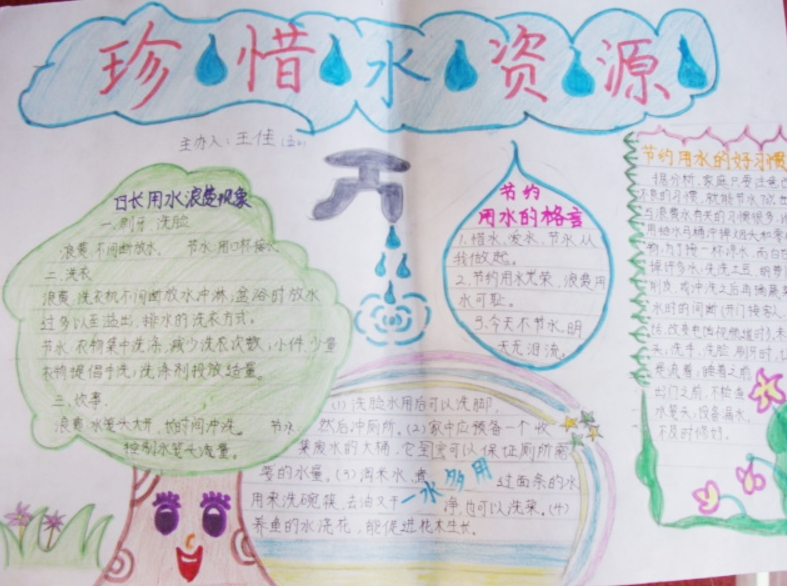 珍惜水资源
主办人：王佳
日长用水浪费现象
一.刷牙、洗脸
浪费:不间断放水. 节水:用口杯接水
二.洗衣
浪费:洗衣机不间断放水冲淋;盆浴时放水
过多以至溢出,排水的洗衣方式。
节水:衣物集中洗涤,减少洗衣次数;小件、少量
衣物提倡手洗;洗涤剂投放适量。
三.炊事.
浪费:水笼头大开,长时间冲洗。 节水:
控制水笼头流量。
节约
用水的格言
1.惜水、爱水、节水,从
我做起。
2.节约用水光荣,浪费用
水可耻。
3.今天不节水,明
天无泪流。
(1)洗脸水用后可以洗脚,
然后冲厕所。(2)家中应预备一个收
集废水的大桶,它可以保证厕所需
要的水量。(3)淘米水、煮过面条的水
一水多用
用来洗碗筷,去油又干净,也可以洗菜。(4)
养鱼的水浇花,能促进花木生长。
节约用水的好习惯
据分析,家庭只要注意
良的习惯,就能节水70%
与浪费水有关的习惯很多,
用抽水马桶冲掉烟头和
物;为了接一杯凉水,
掉许多水;先洗土豆、胡萝
削皮,或冲洗之后再摘蔬菜
水的间断(开门接客人、
头;洗手、洗脸、刷牙时,
是流着;睡着之前、
出门之前,不检查
水笼头;设备漏水,
不及时修好。